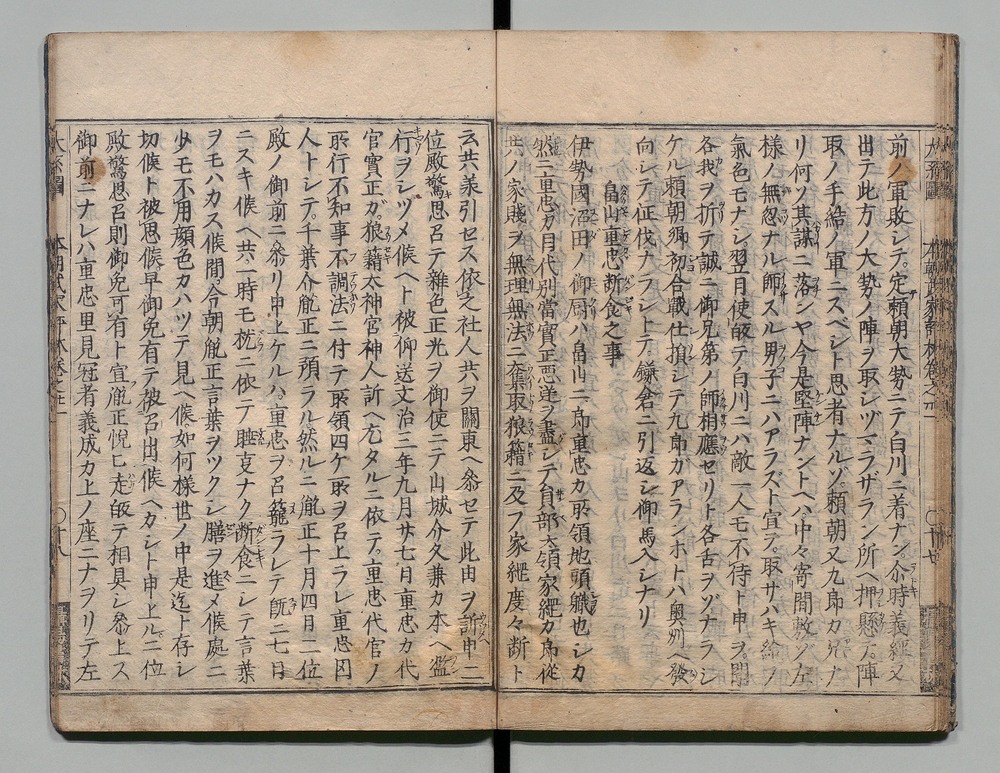 前ノ軍敗レテ。定頼朝大勢ニテ白川ニ着ナン。尒時義經又
出テ此方ノ大勢ノ陣ヲ取シヅマラザラン所ヘ押懸テ。陣
取ノ手繪ノ軍ニスベシト思者ナルゾ。頼朝又九郎カ兄ナ
リ何ソ其謀ニ落シヤ今是堅陣ナントヘハ中々寄間敷ゾ左
様ノ無忽ナル師スル男子ニハアラズト宣テ。取サハキ給フ
氣色モナシ。翌月使皈テ白川ニハ敵一人モ不待ト申ヲ。聞
各我ヲ折テ誠ニ御兄第ノ師相應セリト各舌ヲゾナラシ
ケル頼朝卿初合戰仕損シテ九郎ガアランホトハ奥州ヘ發
向シテ征伐ナラシトテ。鎌倉ニ引返シ御馬入シナリ
畠山重忠断食之事
伊勢國沼田ノ御厨ハ畠山二郎重忠カ所領地頭職也シカ
然ニ重忠カ目代別當實正悪逆ヲ盡シテ員部大領家綱カ為從
共ノ家賤ヲ無理無法ニ奪取狼藉ニ及フ家綱度々断ト
云共義引セス依之社人共ヲ關東ヘ参セテ此由ヲ訴申二
位殿驚思召テ雜色正光ヲ御使ニテ山城介久兼カ本ヘ濫
行ヲシヅメ候ヘト被仰送文治三年九月廿七日重忠カ代
官實正ガ。狼藉太神宮神人訴ヘ尤タルニ依テ。重忠代官ノ
所行不知事不調法ニ付テ所領四ケ所ヲ召上ラレ重忠囚
人トシテ。千葉介胤正ニ預ラル然ルニ胤正十月四日二位
殿ノ御前ニ参リ申上ケルハ。重忠ヲ召籠ラレテ既ニ七日
ニスキ候ヘ共一時モ枕ニ依テ睡叓ナク断食ニシテ言葉
ヲモハカス候間。今朝胤正言葉ヲツクシ膳ヲ進メ候處ニ
少モ不用顔色カハツテ見ヘ候如何様世ノ中是迄ト存シ
切候ト被思候早御免有テ被召出候ヘカシト申上ル二位
殿驚思召則御免可有ト宣胤正悦ヒ走皈テ相具シ参上ス
御前ニナレハ重忠里見冠者義成カ上ノ座ニナヲリテ左